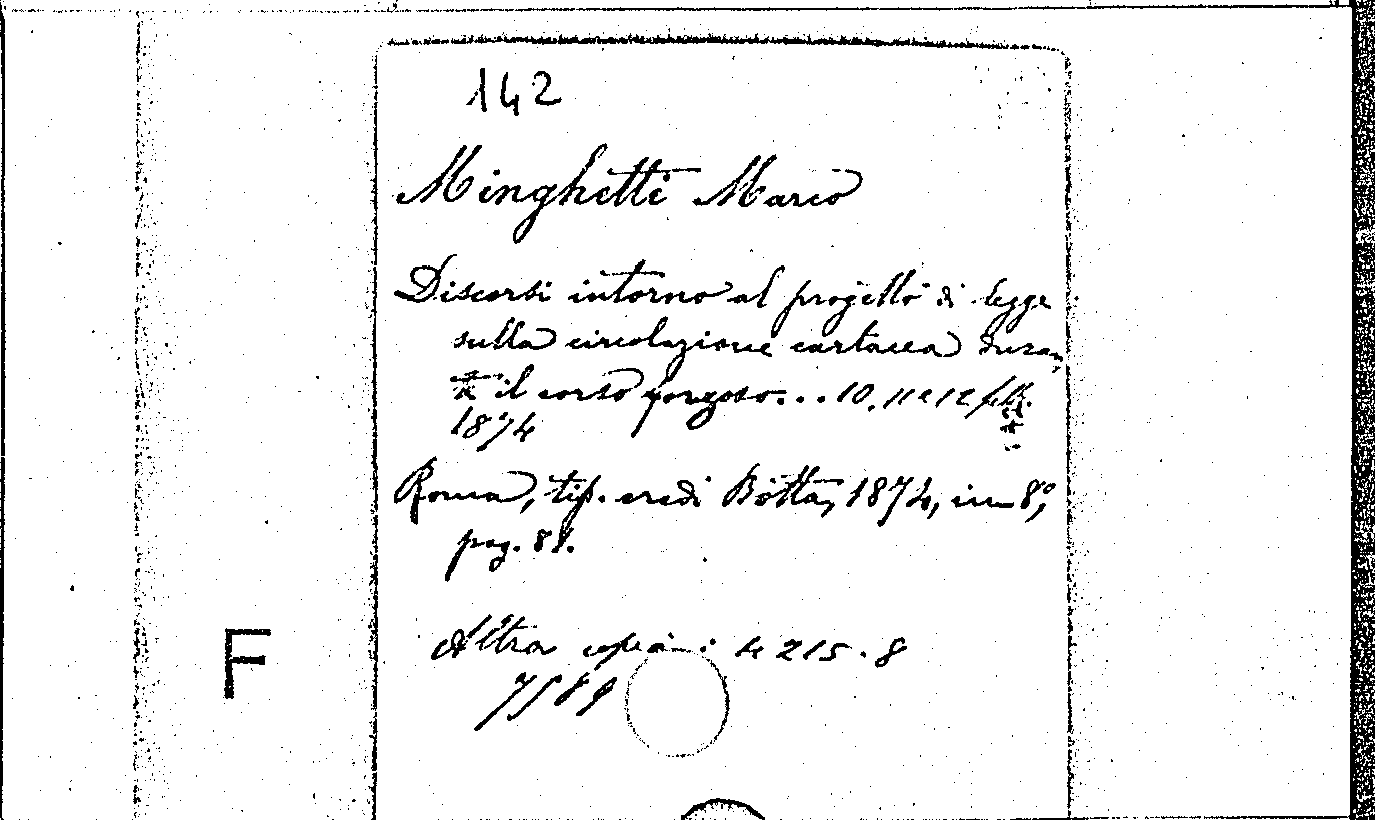 142
Minghetti Mario
Discorsi intorno al progetto di legge
sulla circolazione cartacea duran
te il corso forzoso... 10, 11 e 12 febb.
1874
Roma, tip. eredi Botta, 1874, in 8°,
pag. 88.
F
Altra copia: 4 215.8
7589